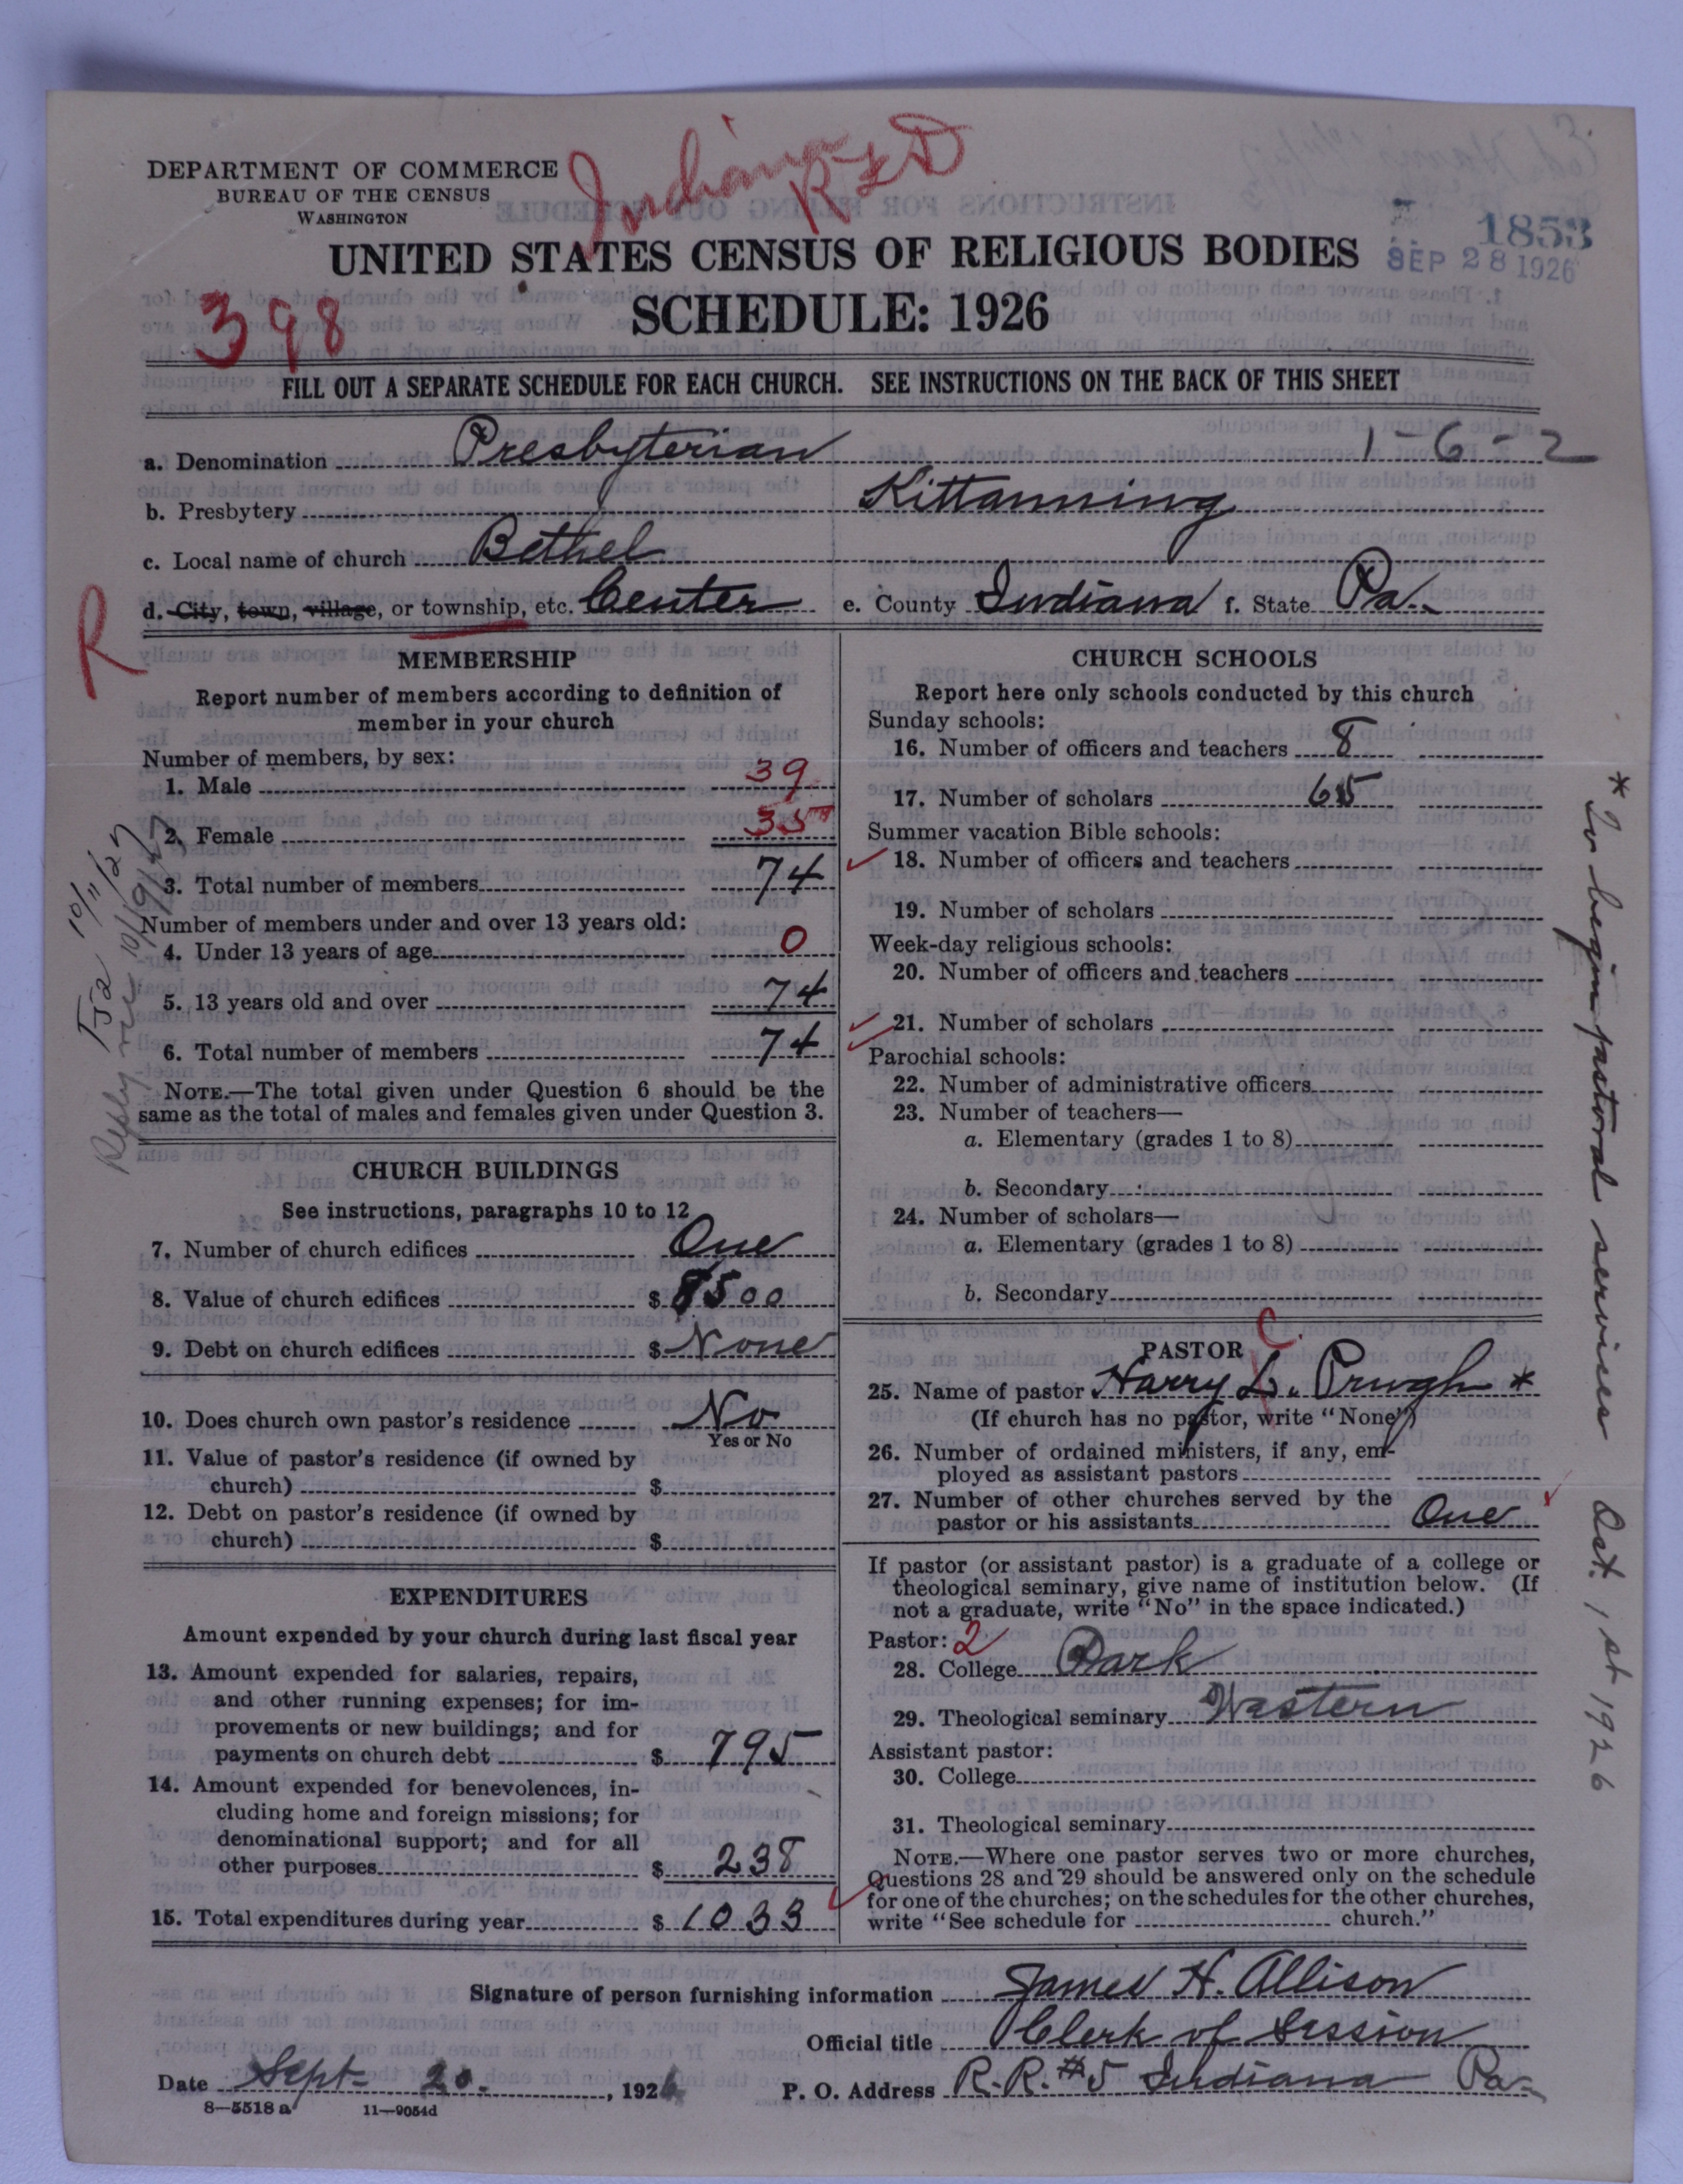 Indiana
R F D
DEPARTMENT OF COMMERCE
BUREAU OF THE CENSUS
WASHINGTON
1853
SEP 28 1926
UNITED STATES CENSUS OF RELIGIOUS BODIES
398
SCHEDULE: 1926
FILL OUT A SEPARATE SCHEDULE FOR EACH CHURCH. SEE INSTRUCTIONS ON THE BACK OF THIS SHEET
a. Denomination Presbyterian 1-6-2
b. Presbytery Kittanning
c. Local name of church Bethel
d. City, town, village, or township, etc. Center e. County Indiana f. State Pa.
R
MEMBERSHIP
Report number of members according to definition of
member in your church
Number of members, by sex:
1. Male 39
2. Female 35
3. Total number of members 74
Number of members under and over 13 years old:
4. Under 13 years of age 0
5. 13 years old and over 74
6. Total number of members 74
NOTE.—The total given under Question 6 should be the
same as the total of males and females given under Question 3.
10/11/27
CHURCH BUILDINGS
See instructions, paragraphs 10 to 12
7. Number of church edifices One
8. Value of church edifices $ 8500
9. Debt on church edifices $ None
10. Does church own pastor's residence No
Yes or No
11. Value of pastor's residence (if owned by
church) $
12. Debt on pastor's residence (if owned by
church) $
EXPENDITURES
Amount expended by your church during last fiscal year
13. Amount expended for salaries, repairs,
and other running expenses; for im-
provements or new buildings; and for
payments on church debt $ 795
14. Amount expended for benevolences, in-
cluding home and foreign missions; for
denominational support; and for all
other purposes $ 238
15. Total expenditures during year $ 1033
CHURCH SCHOOLS
Report here only schools conducted by this church
Sunday schools:
16. Number of officers and teachers 8
17. Number of scholars 65
Summer vacation Bible schools:
18. Number of officers and teachers
19. Number of scholars
Week-day religious schools:
20. Number of officers and teachers
21. Number of scholars
Parochial schools:
22. Number of administrative officers
23. Number of teachers—
a. Elementary (grades 1 to 8)
b. Secondary
24. Number of scholars—
a. Elementary (grades 1 to 8)
b. Secondary
C
PASTOR
25. Name of pastor Harry L. Prugh *
(If church has no pastor, write "None")
26. Number of ordained ministers, if any, em-
ployed as assistant pastors
27. Number of other churches served by the
pastor or his assistants One
If pastor (or assistant pastor) is a graduate of a college or
theological seminary, give name of institution below. (If
not a graduate, write "No" in the space indicated.)
Pastor: 2
28. College Park
29. Theological seminary Western
Assistant pastor:
30. College
31. Theological seminary
NOTE.—Where one pastor serves two or more churches,
Questions 28 and 29 should be answered only on the schedule
for one of the churches; on the schedules for the other churches,
write "See schedule for church."
* To begin pastoral services Oct. 1st 1926
Signature of person furnishing information James H. Allison
Official title Clerk of Session
Date Sept 20., 1926 P. O. Address R.R. #5 Indiana Pa.
8—5518 a 11—9054d